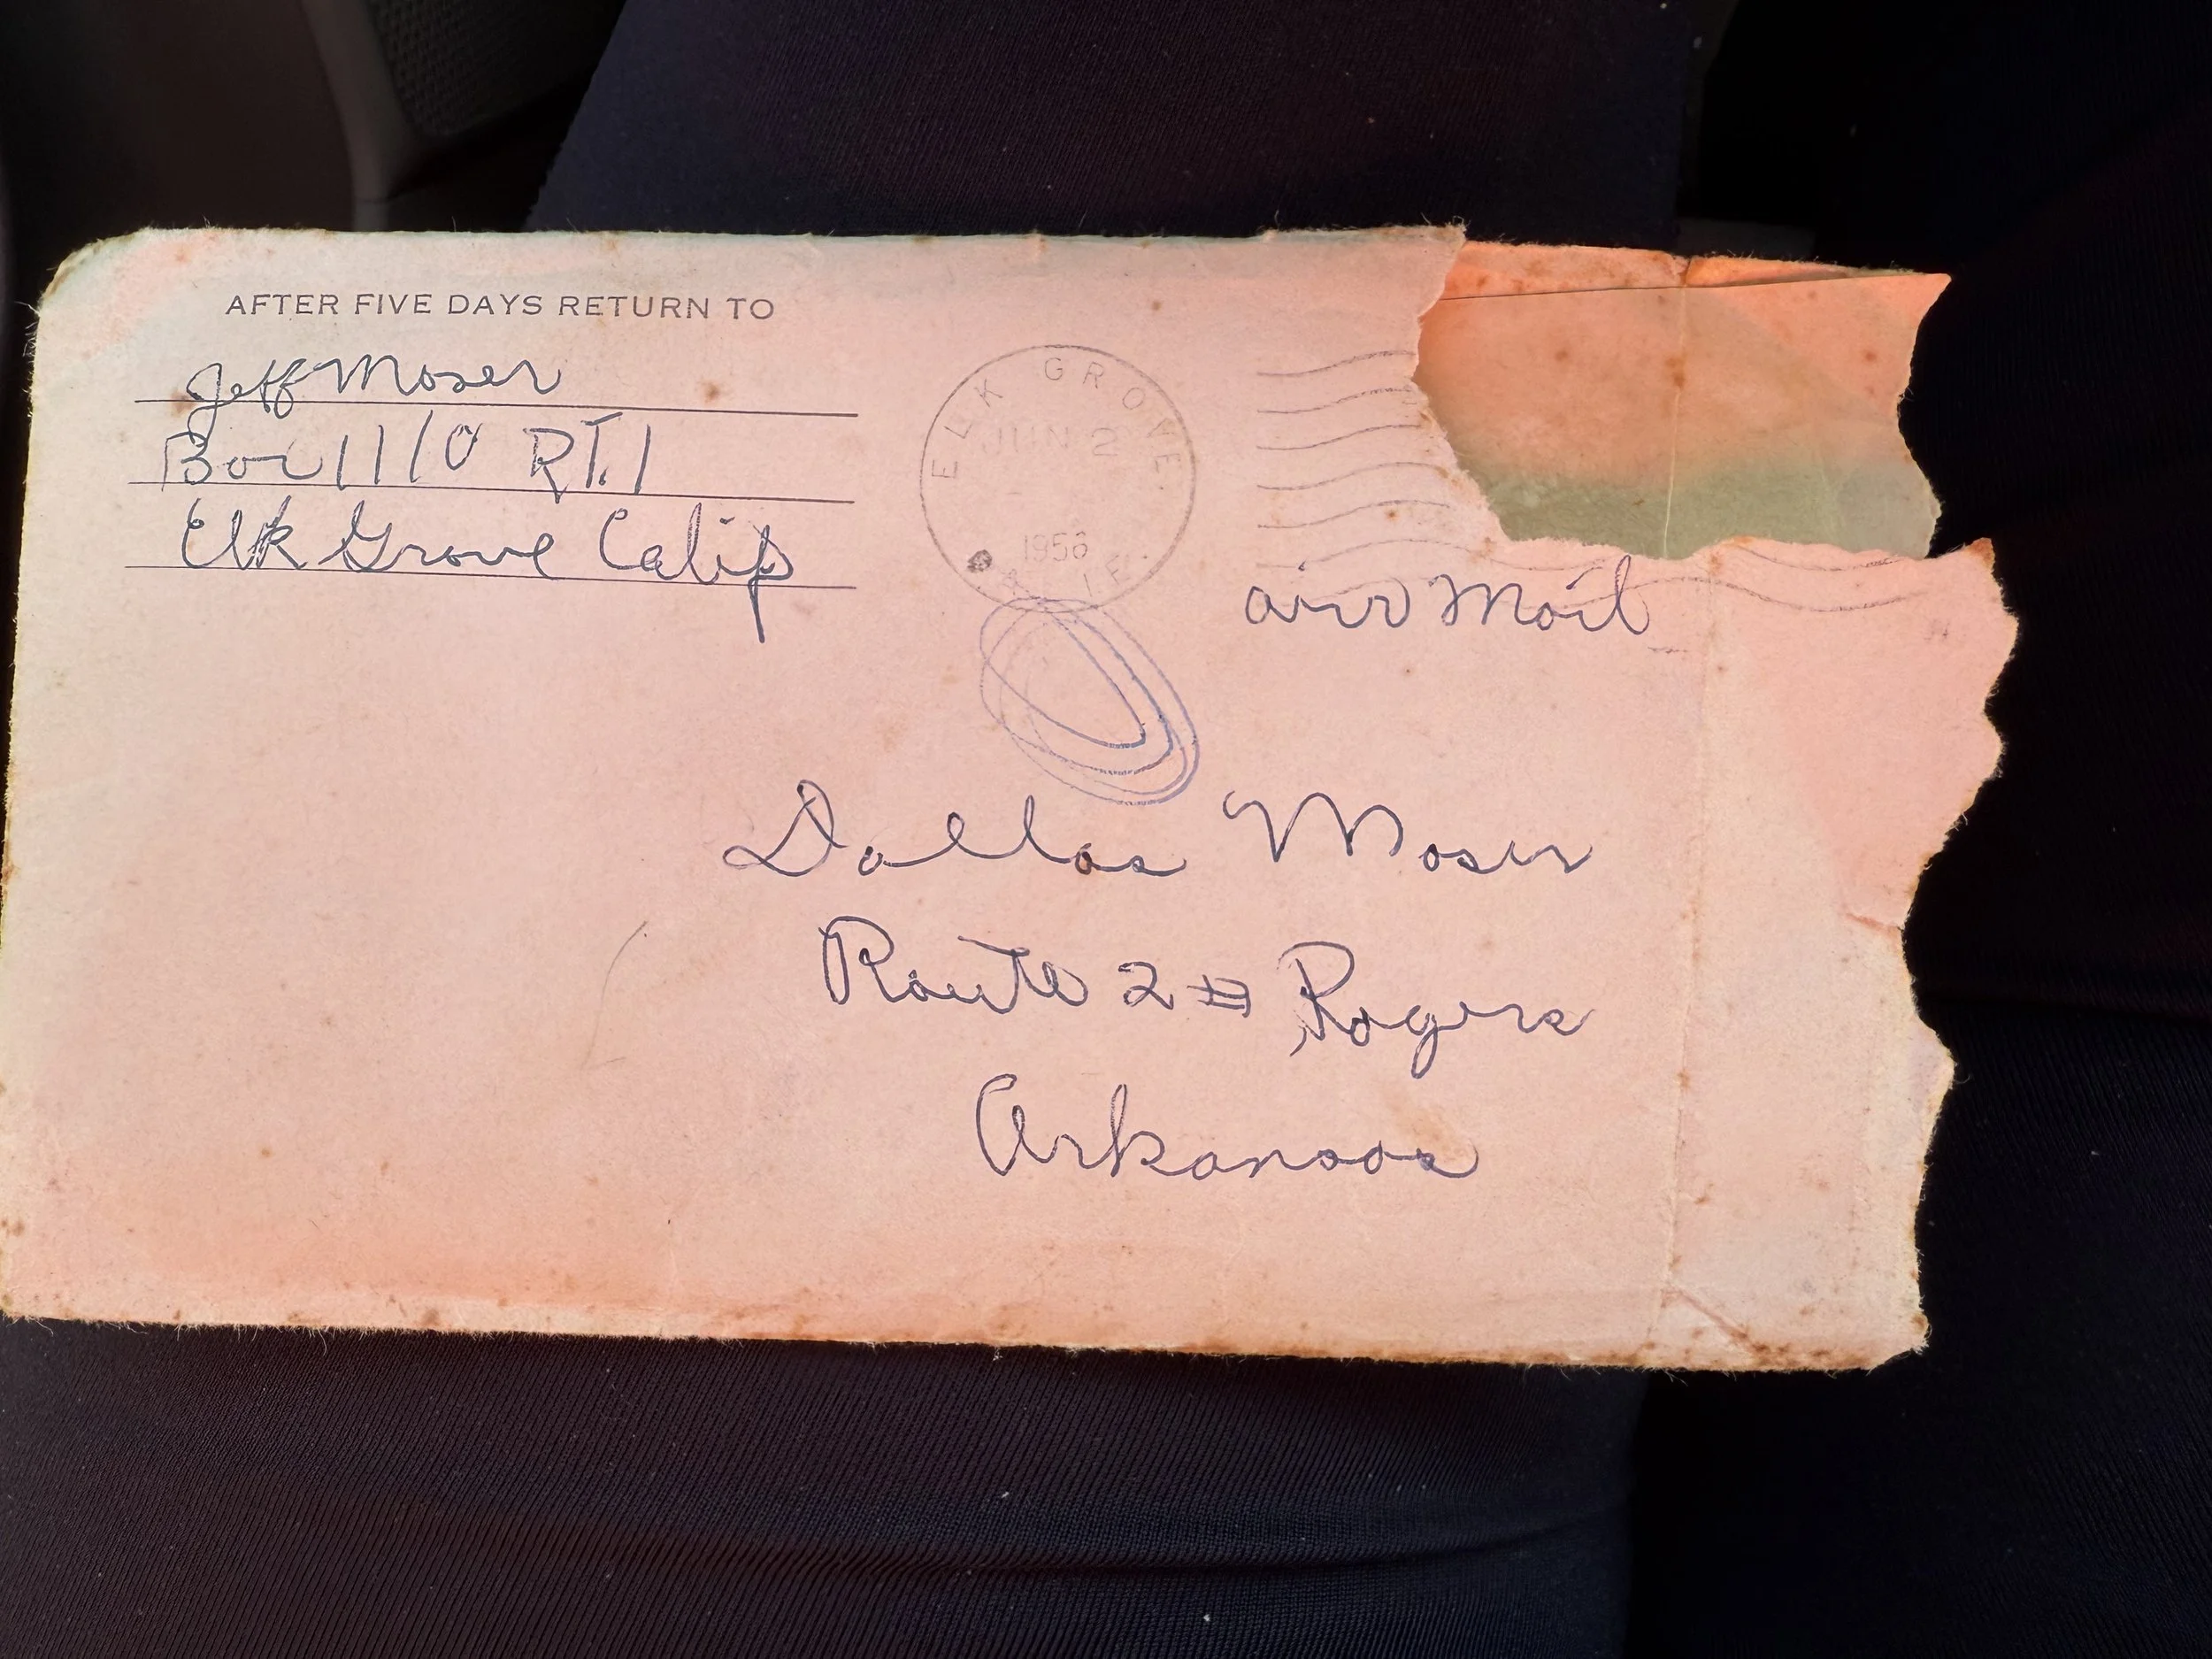 AFTER FIVE DAYS RETURN TO
Jeff Moser
Box 1110 RT. 1
Elk Grove Calif
ELK GROVE
JUN 2
1956
air Mail
Dallas Moser
Route 2 Rogers
Arkansas